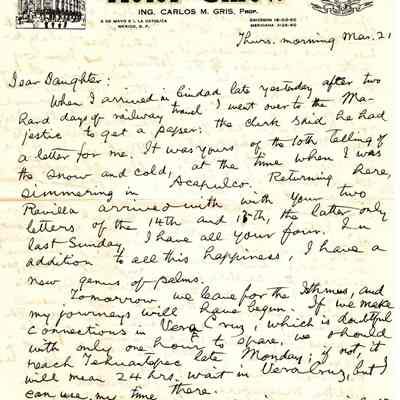 ING. CARLOS M. GRIS, PROP.
5 DE MAYO E I. LA CATOLICA
MEXICO, D. F.
ERICSSON 18-00-60
MEXICANA
Thurs. morning Mar. 21
Dear Daughter:
When I arrived in ciudad late yesterday after two
hard days of railway travel I went over to the Ma-
jestic to get a paper: the clerk said he had
a letter for me. It was yours of the 10th telling of
the snow and cold, at the time when I was
simmering in Acapulco. Returning here,
Revilla arrived with with your two
letters of the 14th and 15th, the latter only
last Sunday. I have all your four. In
addition to all this happiness, I have a
new genus of palms.
Tomorrow we leave for the Isthmus, and
my journeys will have begun. If we make
connections in Vera Cruz, which is doubtful
with only one hour to spare, we should
reach Tehuantepec late Monday; if not, it
will mean 24 hrs. wait in Vera Cruz, but I
can use my time there.